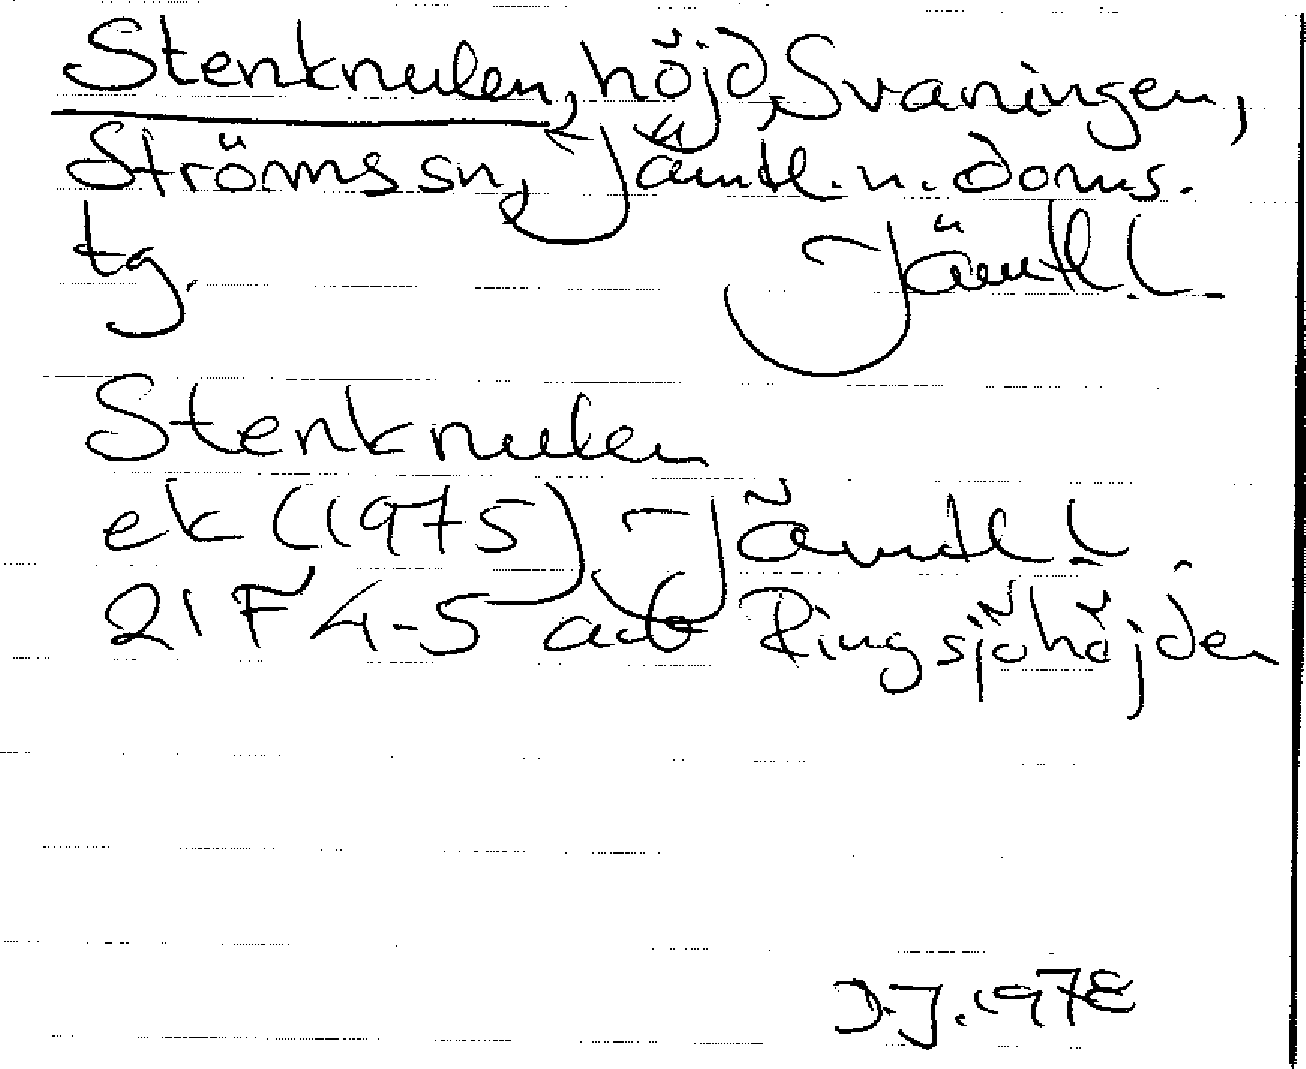 Stenknulen, höjd, Svaningen,
Ströms sn, Jämtl. n. doms.
tg. Jämtl. l.
Stenknulen
ek (1975) Jämtl. l.
21 F 4-5 a-b Ringsjöhöjden
D.J. 1978